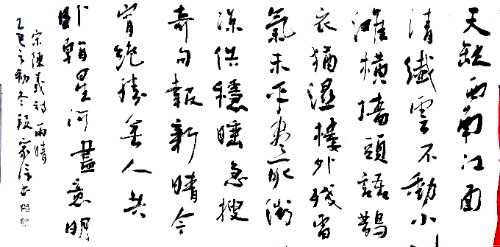 天缺西南江面
清纖雲不動小
灘橫墻頭語鵲
衣猶濕樓外殘雷
氣未平盡取微
涼供穩睡急搜
奇句報新晴今
宵絕勝無人共
卧看星河盡意明
宋陳與義詩雨晴
乙巳之初冬段家書